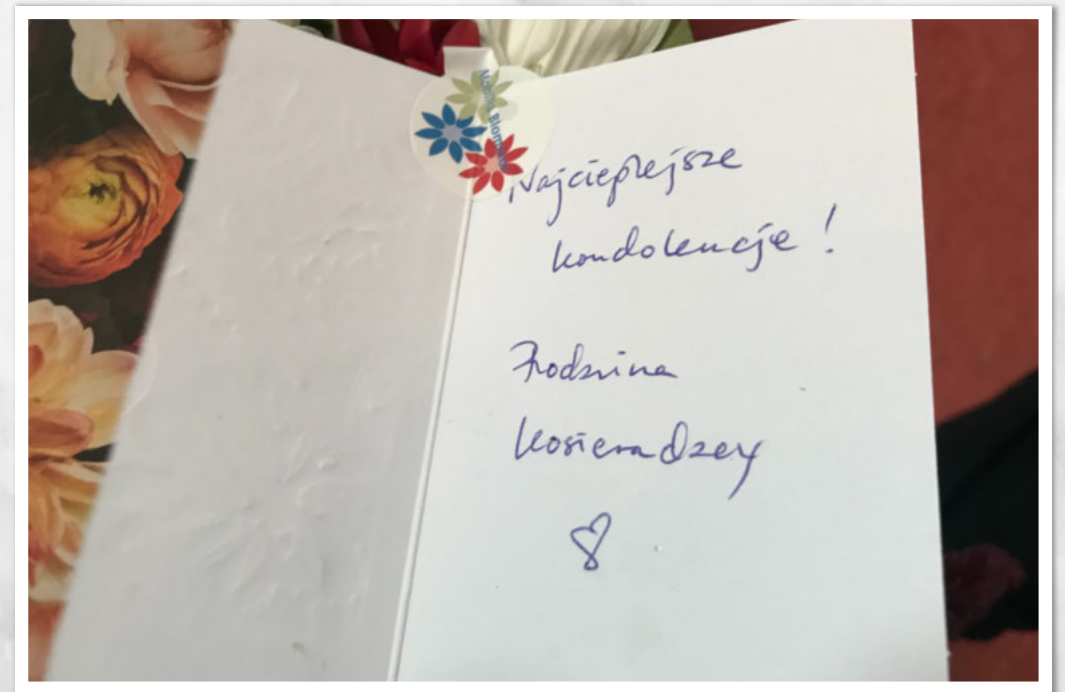 Najcieplejsze
kondolencje !
Rodzina
Kosieradzcy